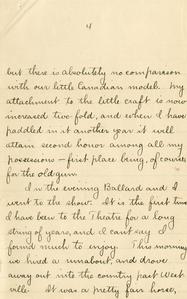 4
but there is absolutely no comparison
with our little Canadian model. My
attachment to the little craft is now
increased two fold, and when I have
paddled in it another year it will
attain second honor among all my
possessions – first place being, of course,
for the old gun.
In the evening Ballard and I
went to the show. It is the first time
I have been to the Theatre for a long
string of years, and I can't say I
found much to enjoy. This morning
we hired a runabout, and drove
away out into the country past West
ville. It was a pretty fair horse,